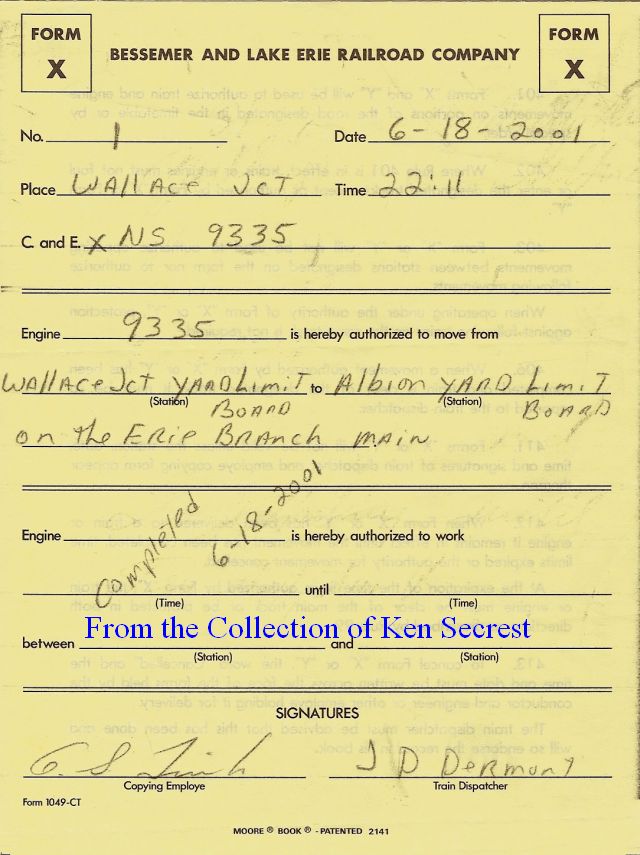 FORM X
FORM X
BESSEMER AND LAKE ERIE RAILROAD COMPANY
No. 1 Date 6-18-2001
Place WALLACE JCT Time 22:11
C. and E. X NS 9335
Engine 9335 is hereby authorized to move from
WALLACE JCT YARD LIMIT to ALBION YARD LIMIT
(Station) (Station)
BOARD BOARD
on the ERIE BRANCH MAIN
Engine is hereby authorized to work
Completed 6-18-2001
until
(Time) (Time)
From the Collection of Ken Secrest
between and
(Station) (Station)
SIGNATURES
J D Dermont
Copying Employe Train Dispatcher
Form 1049-CT
MOORE ® BOOK ® - PATENTED 2141